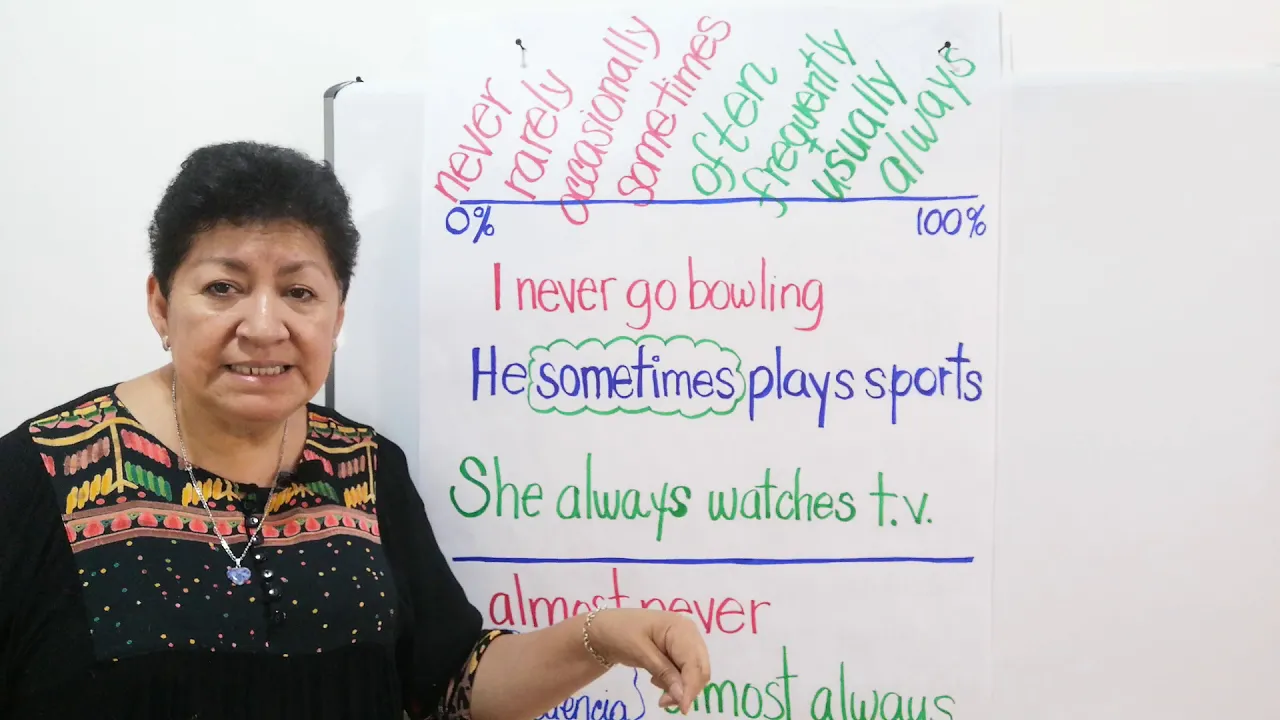 never rarely occasionally sometimes often frequently usually always
0% 100%
I never go bowling
He sometimes plays sports
She always watches t.v.
almost never
almost always